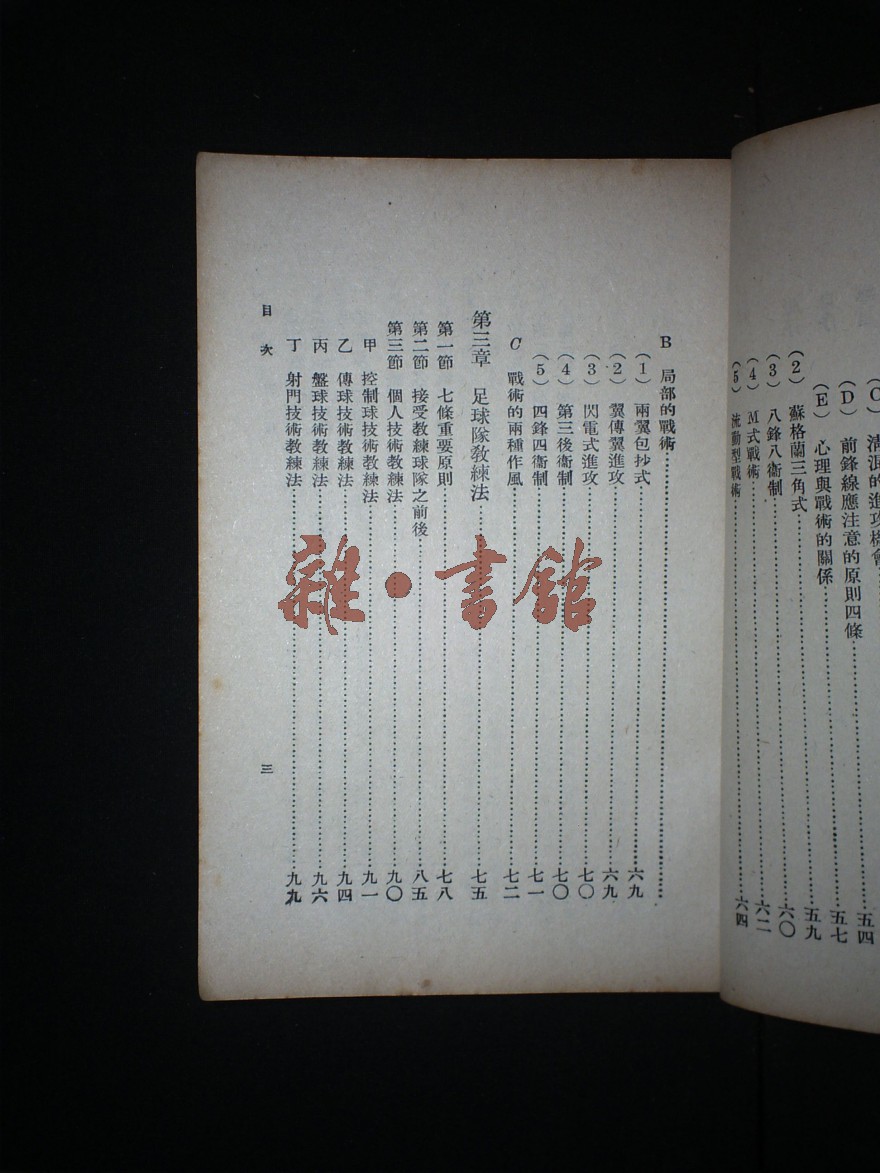 淸源的進攻機會……五四
(D) 前鋒線應注意的原則四條……五七
(E) 心理與戰術的關係……五九
(2) 蘇格蘭三角式……六〇
(3) 八鋒八衞制……六二
(4) M式戰術……六四
(5) 流動型戰術
B 局部的戰術……
(1) 兩翼包抄式……六九
(2) 翼傳翼進攻……六九
(3) 閃電式進攻……七〇
(4) 第三後衞制……七〇
(5) 四鋒四衞制……七一
C 戰術的兩種作風……七二
第三章 足球隊敎練法……七五
第一節 七條重要原則……七八
第二節 接受敎練球隊之前後……八五
第三節 個人技術敎練法……九〇
甲 控制球技術敎練法……九一
乙 傳球技術敎練法……九四
丙 盤球技術敎練法……九六
丁 射門技術敎練法……九九
目次
三
雜·書館